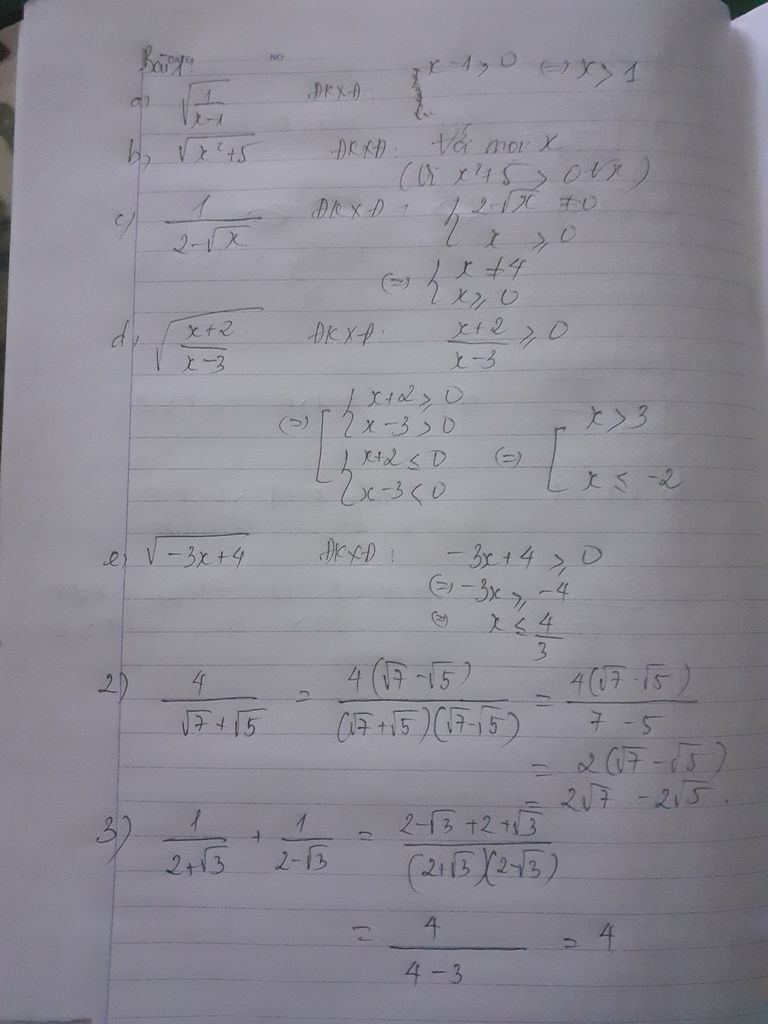 Bài 1
a) √(1/(x-1)) ĐKXĐ: x-1>0 ⇔ x>1
b, √(x²+5) ĐKXĐ: Với mọi x
(Vì x²+5 > 0 ∀x)
c) 1/(2-√x) ĐKXĐ: { 2-√x ≠0
x ≥ 0
⇔ { x ≠ 4
x ≥ 0
d, √((x+2)/(x-3)) ĐKXĐ: (x+2)/(x-3) ≥ 0
⇔ [ { x+2 ≥ 0
x-3 > 0
{ x+2 ≤ 0
x-3 < 0
⇔ [ x > 3
x ≤ -2
e) √(-3x+4) ĐKXĐ: -3x+4 ≥ 0
⇔ -3x ≥ -4
⇔ x ≤ 4/3
2) 4/(√7+√5) = 4(√7-√5)/((√7+√5)(√7-√5)) = 4(√7-√5)/(7-5)
= 2(√7-√5)
= 2√7 - 2√5.
3) 1/(2+√3) + 1/(2-√3) = (2-√3+2+√3)/((2+√3)(2-√3))
= 4/(4-3) = 4